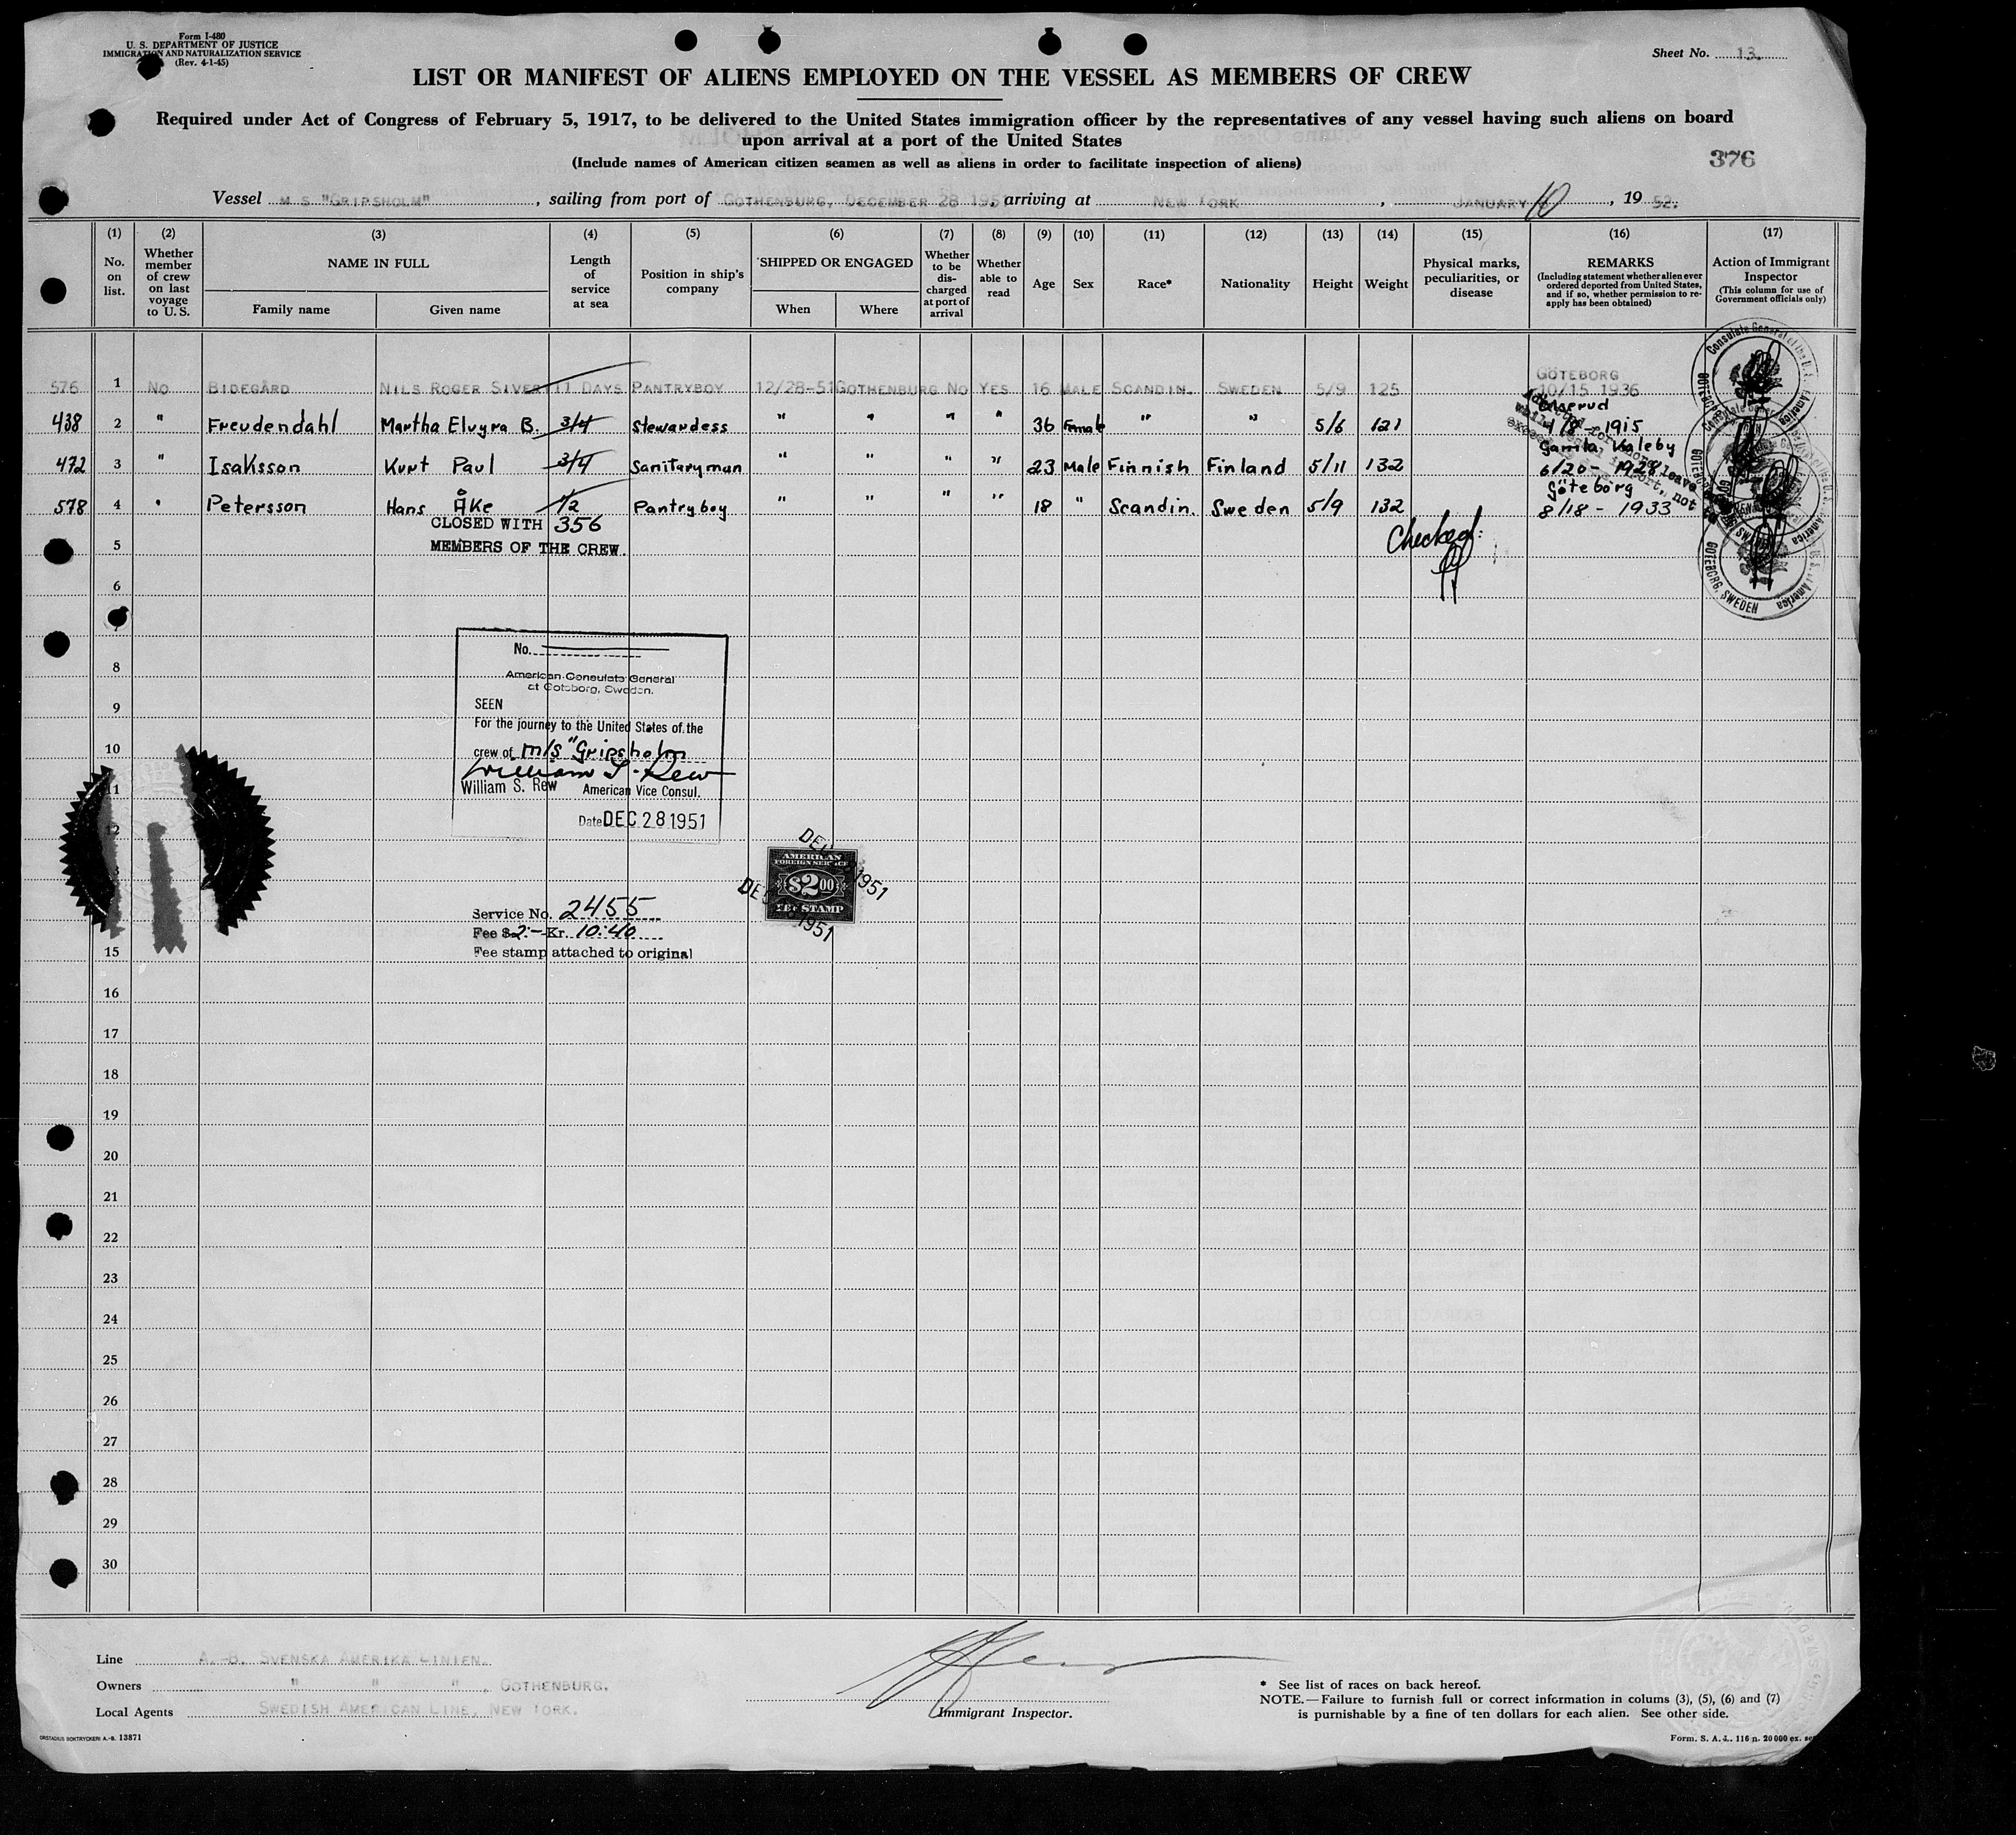 Form I-480
U. S. DEPARTMENT OF JUSTICE
IMMIGRATION AND NATURALIZATION SERVICE
(Rev. 4-1-45)
Sheet No. 13
LIST OR MANIFEST OF ALIENS EMPLOYED ON THE VESSEL AS MEMBERS OF CREW
Required under Act of Congress of February 5, 1917, to be delivered to the United States immigration officer by the representatives of any vessel having such aliens on board
upon arrival at a port of the United States
(Include names of American citizen seamen as well as aliens in order to facilitate inspection of aliens)
376
Vessel M S "GRIPSHOLM", sailing from port of GOTHENBURG, DECEMBER 28 195, arriving at NEW YORK, JANUARY 10, 19 52.
(1) (2) (3) (4) (5) (6) (7) (8) (9) (10) (11) (12) (13) (14) (15) (16) (17)
No. on list.
Whether member of crew on last voyage to U. S.
NAME IN FULL
Family name
Given name
Length of service at sea
Position in ship's company
SHIPPED OR ENGAGED
When
Where
Whether to be discharged at port of arrival
Whether able to read
Age
Sex
Race*
Nationality
Height
Weight
Physical marks, peculiarities, or disease
REMARKS
(Including statement whether alien ever ordered deported from United States, and if so, whether permission to reapply has been obtained)
Action of Immigrant Inspector
(This column for use of Government officials only)
GÖTEBORG
576 1 NO BIDEGÅRD NILS ROGER SIVER 11 DAYS PANTRYBOY 12/28-51 GOTHENBURG NO YES 16 MALE SCANDIN. SWEDEN 5/9 125 10/15 1936
438 2 " Freudendahl Martha Elvyra B. 3/4 Stewardess " " " " 36 Female " " 5/6 121 1915
Gamla Kaleby
472 3 " Isaksson Kurt Paul 3/4 Sanitaryman " " " " 23 Male Finnish Finland 5/11 132 6/20 - 1928
Göteborg
578 4 " Petersson Hans Åke 1/2 Pantryboy " " " " 18 " Scandin. Sweden 5/9 132 8/18 - 1933
CLOSED WITH 356
MEMBERS OF THE CREW.
Checked:
Consulate General of the U. S. of America
GÖTEBORG, SWEDEN
5
6
7
8
9
10
11
12
15
16
17
18
19
20
21
22
23
24
25
26
27
28
29
30
No.
American Consulate General
at Goteborg, Sweden.
SEEN
For the journey to the United States of the
crew of m/s "Gripsholm
William S. Rew
William S. Rew American Vice Consul.
Date DEC 28 1951
AMERICAN
FOREIGN SERVICE
$2.00
FEE STAMP
DEC 1951
DEC 1951
Service No. 2455
Fee $2:- Kr. 10:40
Fee stamp attached to original
Line A.-B. SVENSKA AMERIKA LINIEN.
Owners " " " , GOTHENBURG.
Local Agents SWEDISH AMERICAN LINE, NEW YORK.
Immigrant Inspector.
* See list of races on back hereof.
NOTE.—Failure to furnish full or correct information in colums (3), (5), (6) and (7)
is punishable by a fine of ten dollars for each alien. See other side.
ORSTADIUS BOKTRYCKERI A.-B. 13871
Form. S. A. L. 116 n. 20 000 ex.